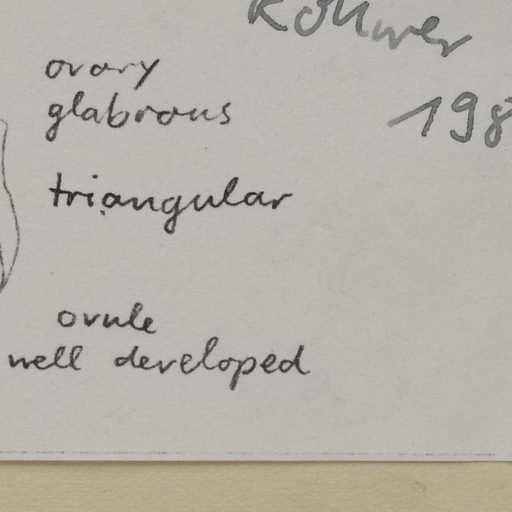 Rohwer
198
ovary
glabrous
triangular
ovule
well developed